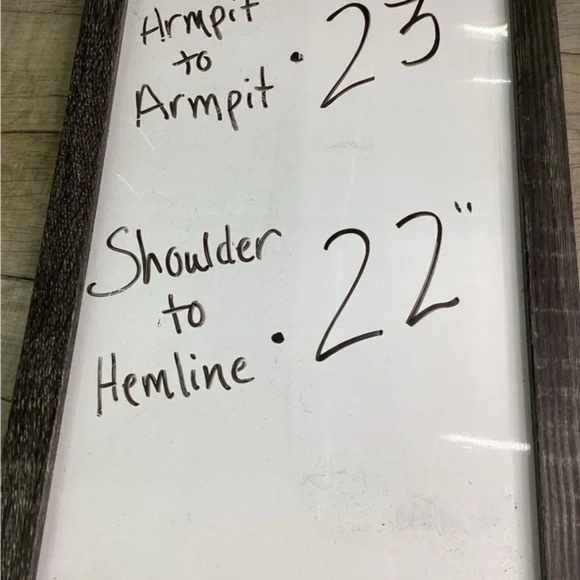 Armpit
to
Armpit • 23
Shoulder
to
Hemline • 22"